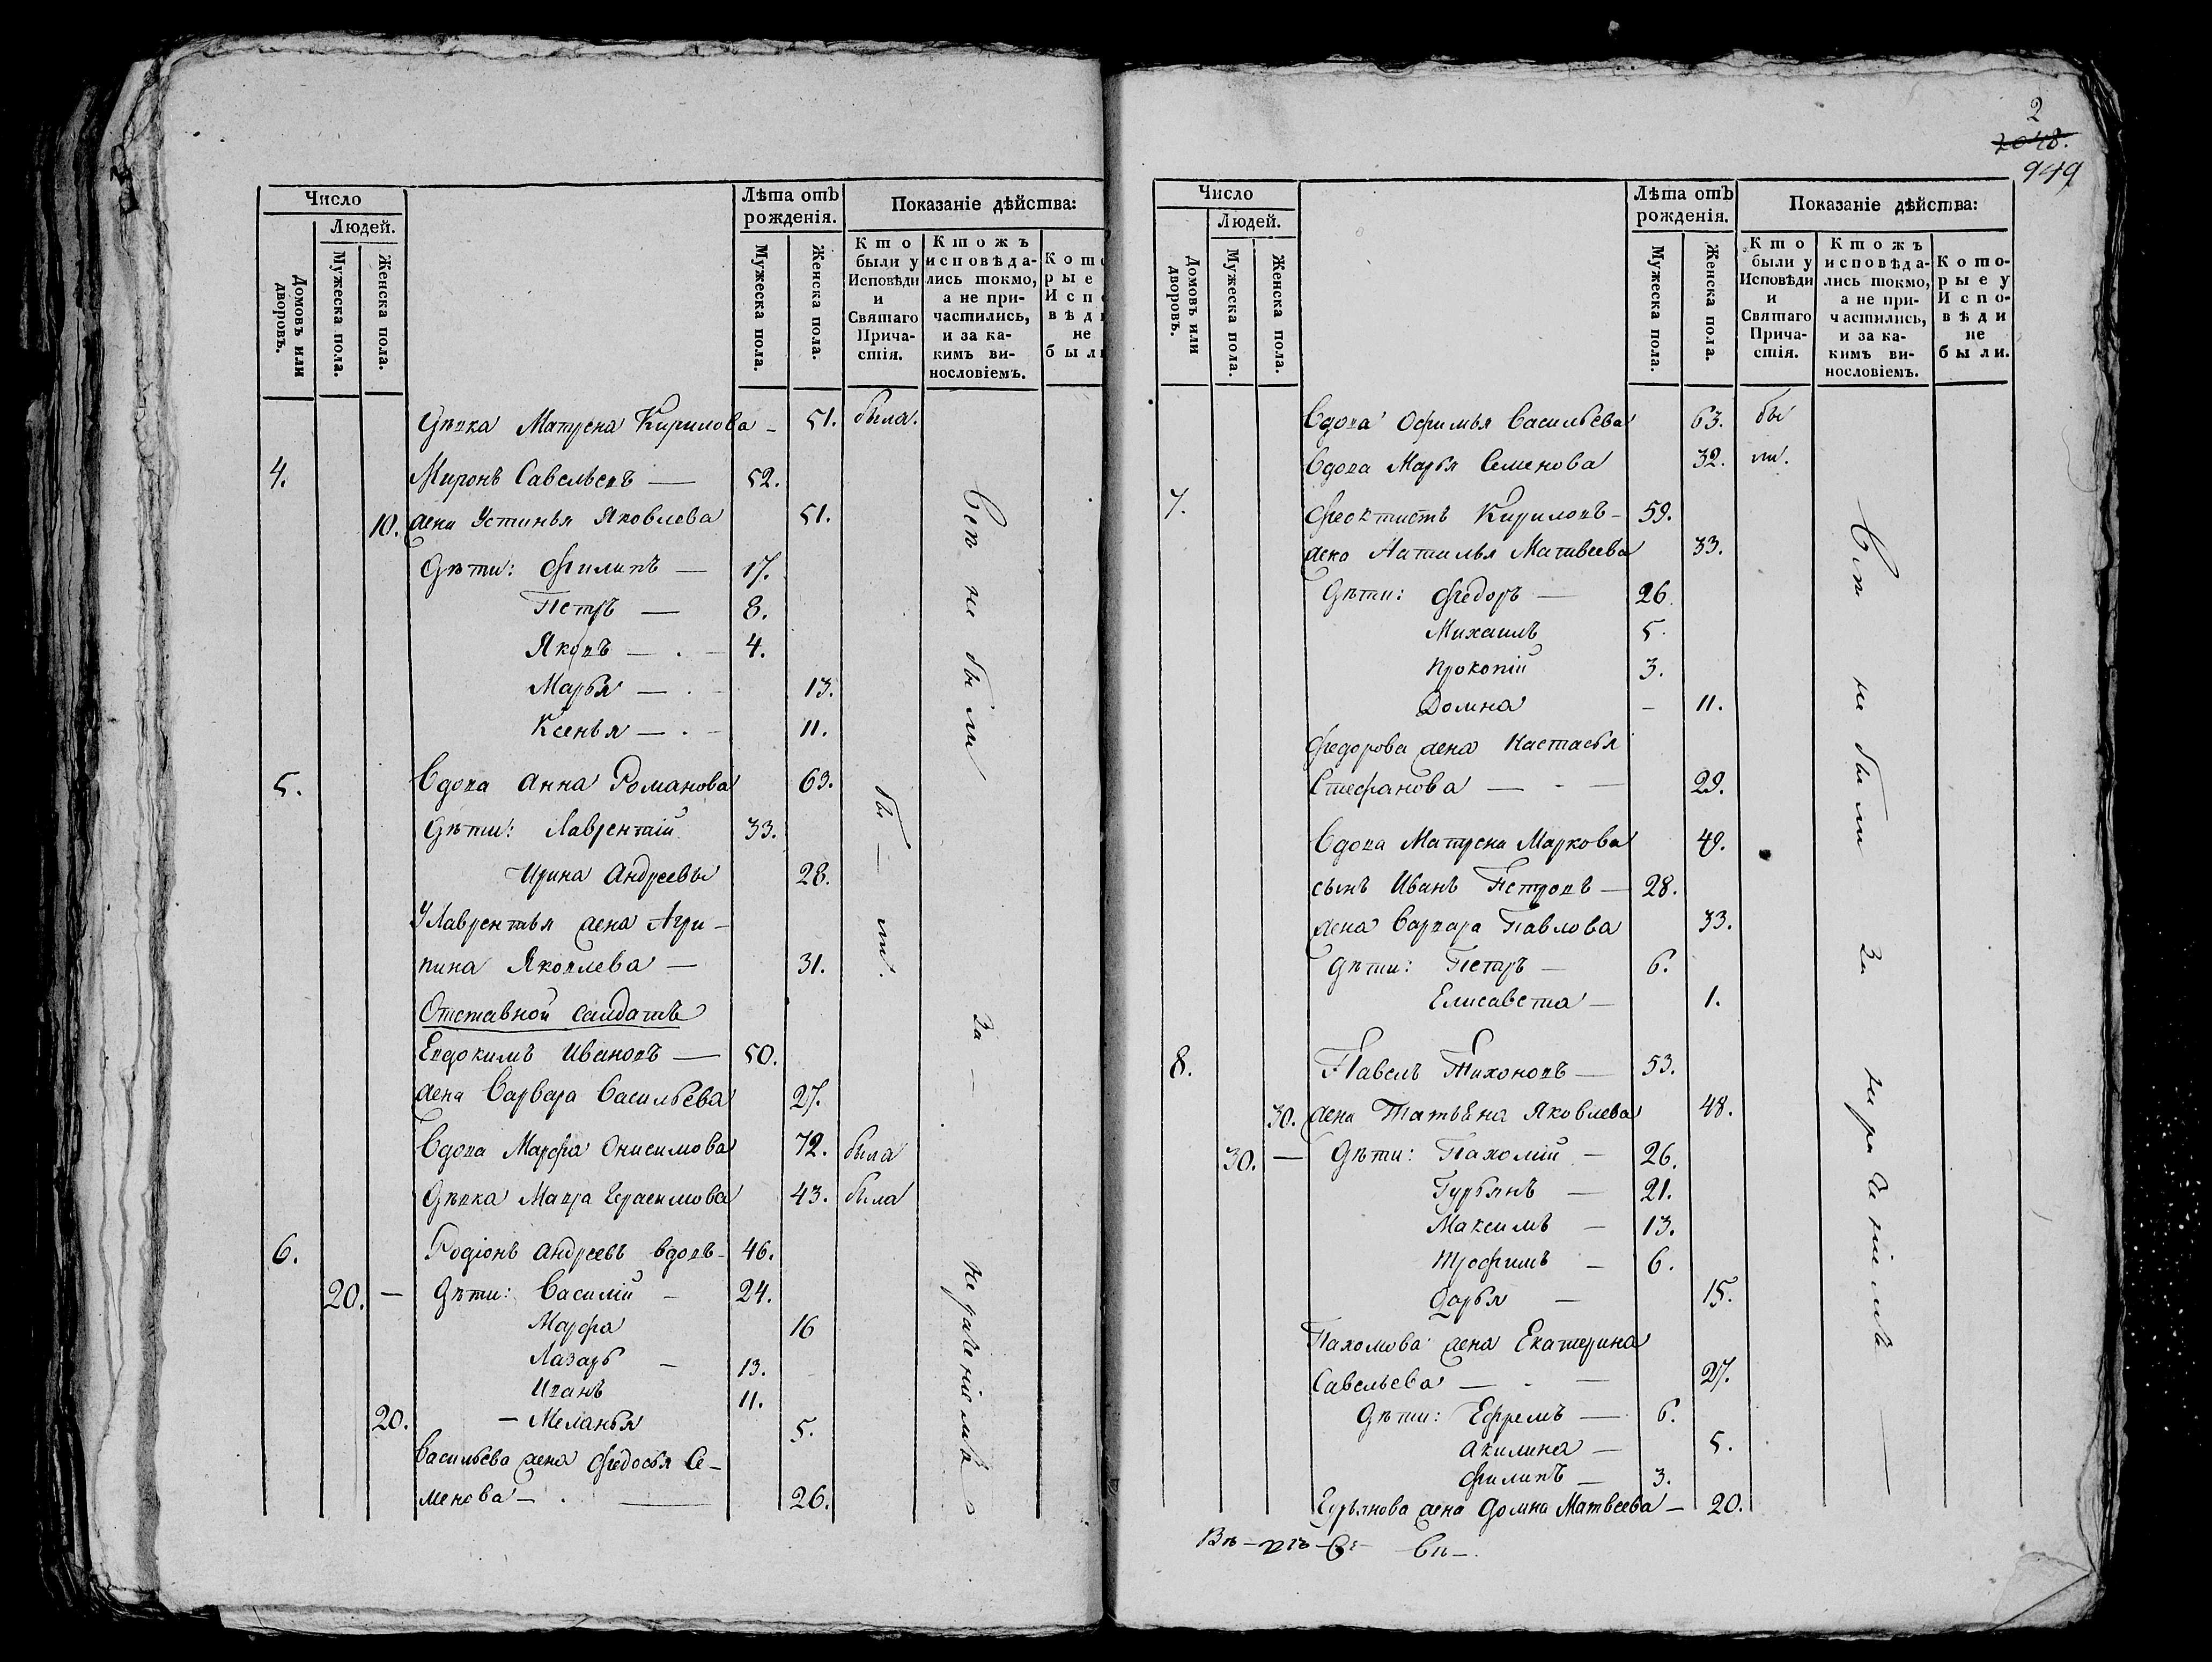 Число
Людей.
Домовъ или дворовъ.
Мужеска пола.
Женска пола.
Лѣта отъ рожденія.
Мужеска пола.
Женска пола.
Показаніе дѣйства:
Кто были у Исповѣди и Святаго Причастія.
Ктожъ исповѣдались токмо, а не причастились, и за какимъ винословіемъ.
Дѣвка Матрена Кирилова - 51. была.
4. Миронъ Савельевъ — 52.
10. жена Устинья Яковлева 51.
Дѣти: Филипъ — 17.
Петръ — 8.
Яковъ — . — 4.
Марья — . - 13.
Ксенья — . - 11.
Всѣ не были
5. Вдова Анна Романова 63.
Дѣти: Лаврентій 33.
Ирина Андреевы 28.
У Лаврентья жена Агри-
пина Яковлева — 31.
бы — ли.
Отставной салдатъ
Евдокимъ Ивановъ — 50.
жена Варвара Васильева 27.
Вдова Марфа Онисимова 72. была
Дѣвка Мавра Герасимова 43. была
6. Родіонъ Андреевъ вдовъ - 46.
20. — Дѣти: Василій - 24.
Марфа 16
Лазарь — 13.
Иванъ 11.
20. — Меланья 5.
Васильева жена Федосья Се-
менова — . — 26.
за — нераченіемъ
2
2048.
949
Число
Людей.
Домовъ или дворовъ.
Мужеска пола.
Женска пола.
Лѣта отъ рожденія.
Мужеска пола.
Женска пола.
Показаніе дѣйства:
Кто были у Исповѣди и Святаго Причастія.
Ктожъ исповѣдались токмо, а не причастились, и за какимъ винословіемъ.
Которые у Исповѣди не были.
Вдова Офимья Васильева 63. бы
Вдова Марья Семенова 32. ли.
7. Феоктистъ Кириловъ - 59.
жена Наталья Матвеева 33.
Дѣти: Федоръ — 26.
Михаилъ 5.
Прокопій 3.
Домна - 11.
Федорова жена Настасья
Стефанова — - — 29.
Вдова Матрена Маркова 49.
сынъ Иванъ Петровъ — 28.
жена Варвара Павлова 33.
Дѣти: Петръ — 6.
Елисавета — 1.
8. Павелъ Тихоновъ — 53.
30. жена Татьяна Яковлева 48.
30. — Дѣти: Пахомій - 26.
Гурьянъ — 21.
Максимъ — 13.
Трофимъ — 6.
Дарья — 15.
Пахомова жена Екатерина
Савельева — - — 27.
Дѣти: Ефремъ — 6.
Акилина — 5.
Филипъ — 3.
Гурьянова жена Домна Матвеева — 20.
Всѣ не были за нераченіемъ —